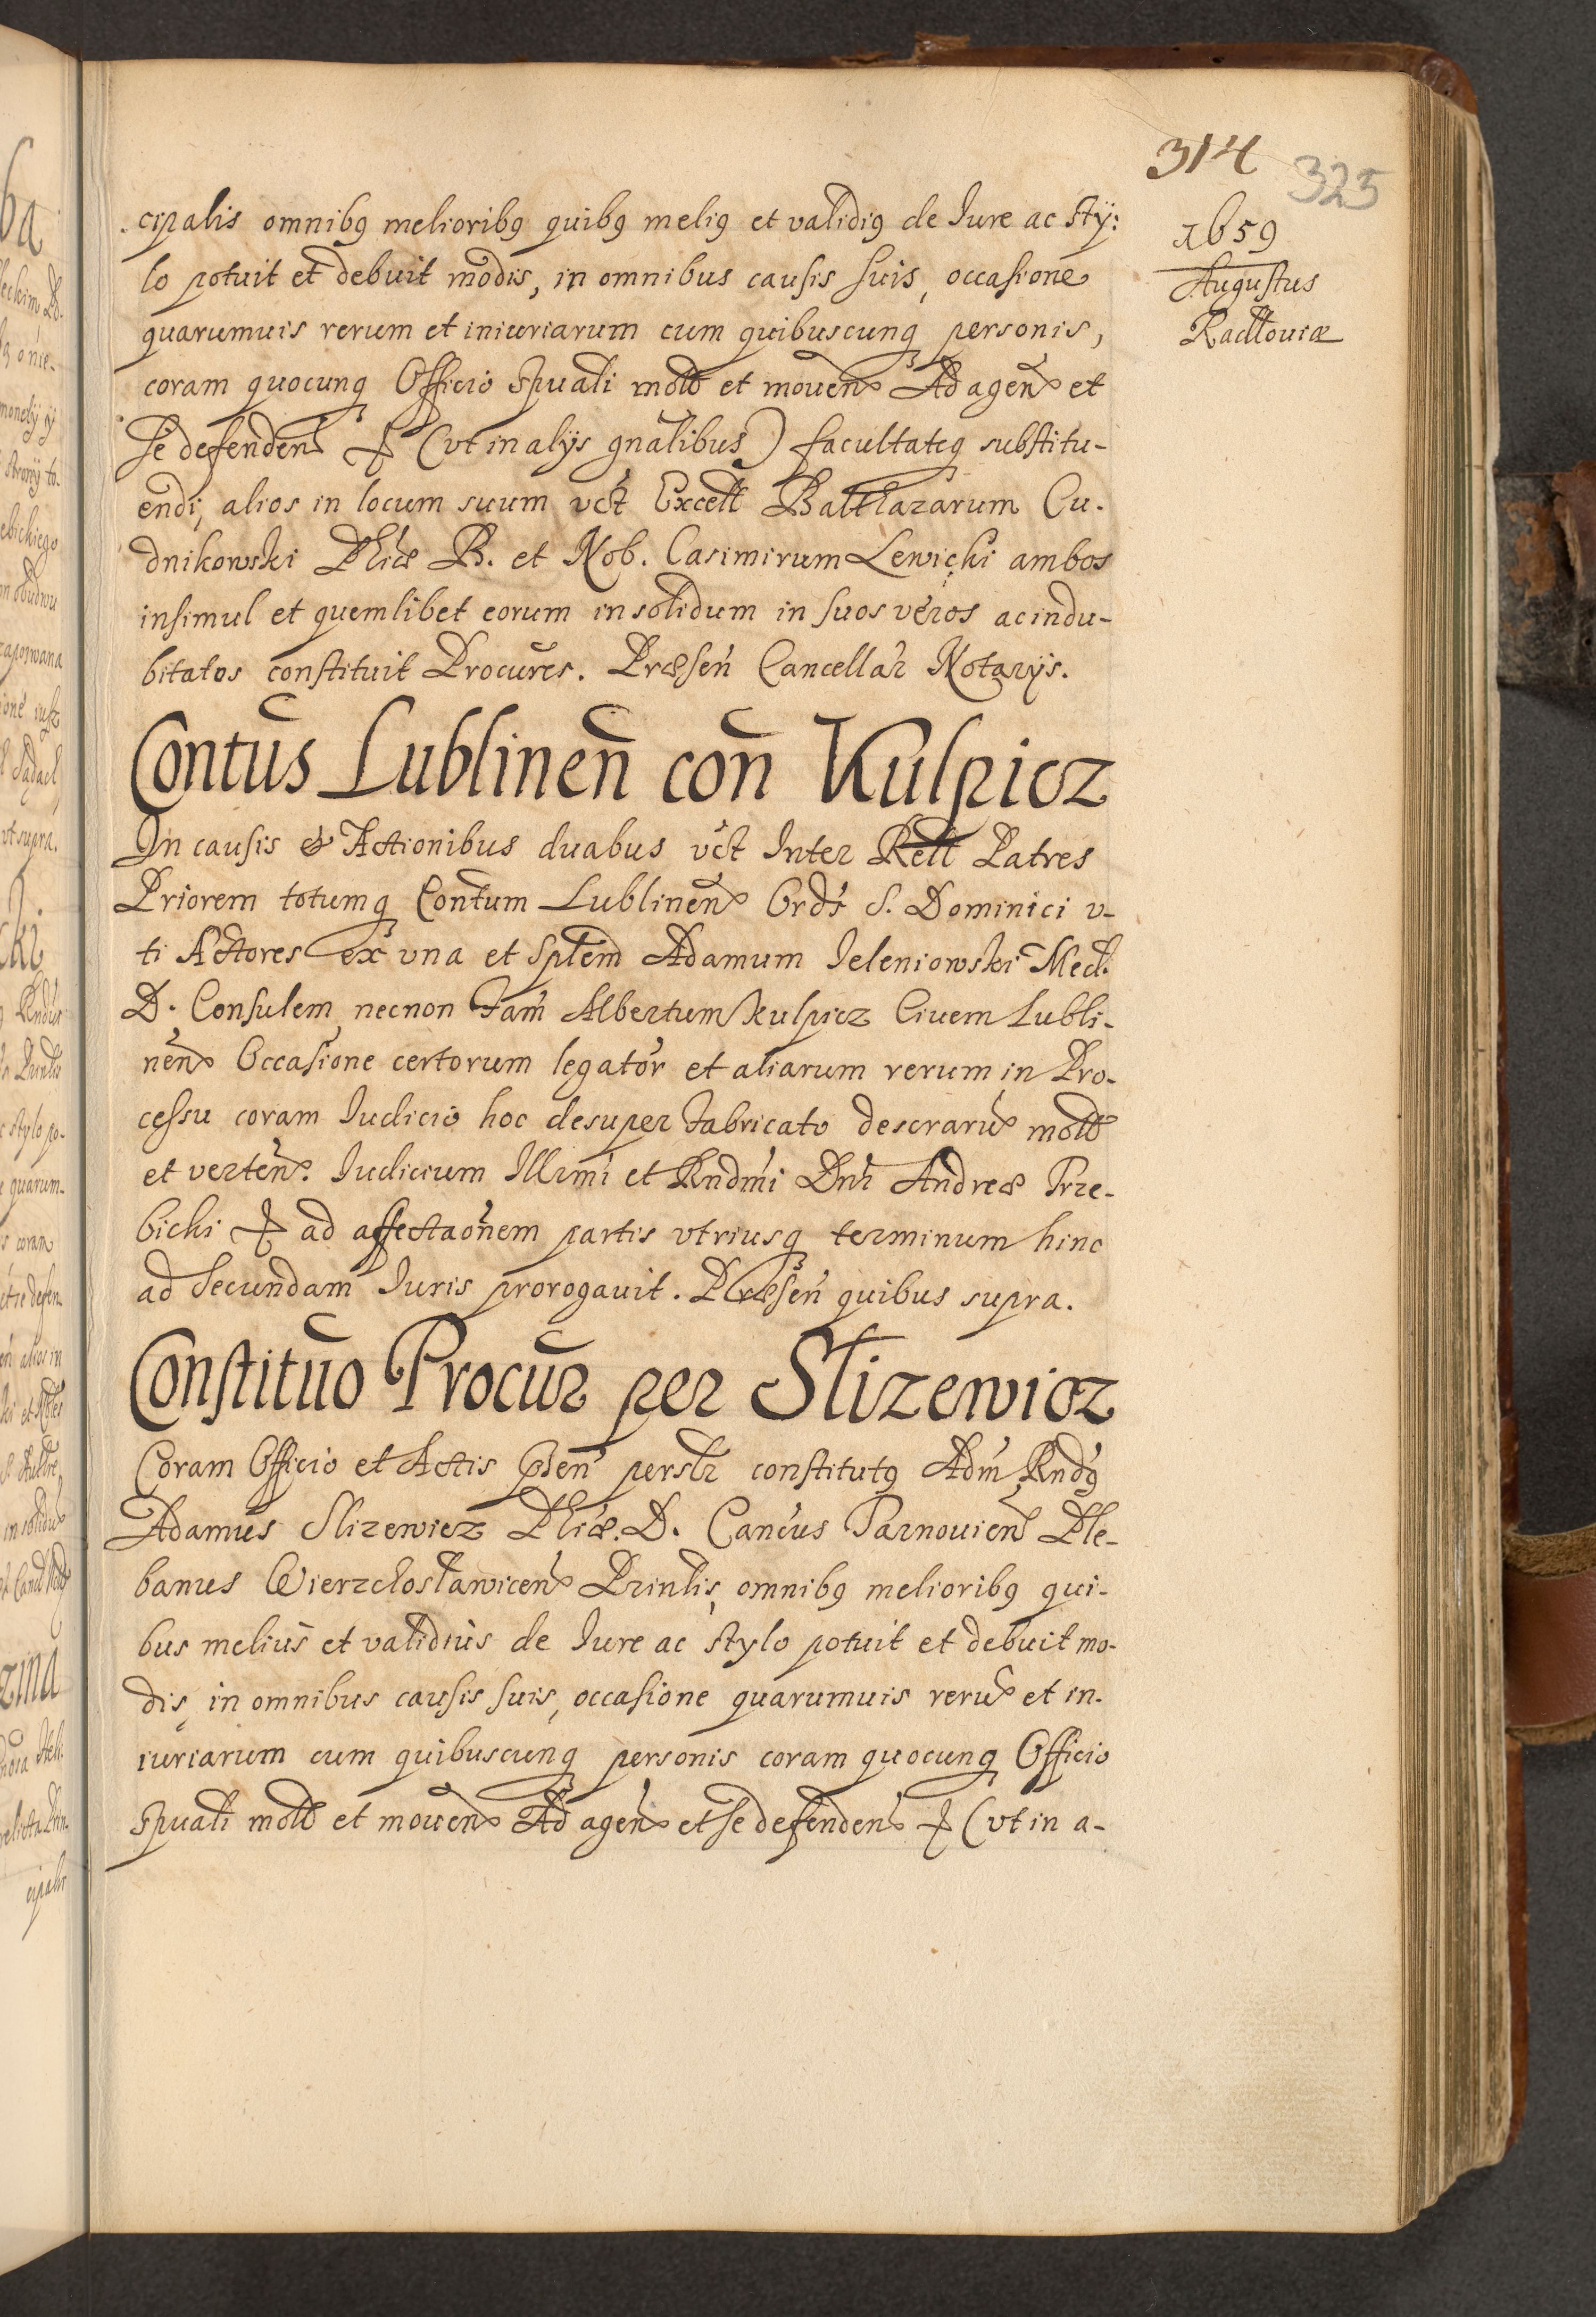 314 325
1659
Augustus
Radlouiæ
cipalis omnibꝫ melioribꝫ quibꝫ meliꝫ et validiꝫ de Iure ac Sty:
lo potuit et debuit modis, in omnibus causis suis, occasione
quarumuis rerum et iniuriarum cum quibuscunq personis,
coram quocunq Officio Spuali mott et mouen Ad agen et
se defenden & (vt in alijs gnalibus) facultateq substitu-
endi, alios in locum suum vct Excell Balthazarum Cu-
dnikowski Phiæ B. et Nob. Casimirum Lewicki ambos
insimul et quemlibet eorum insolidum in suos veros ac indu-
bitatos constituit Procures. Præsen Cancellar Notarijs.
Contus Lublinen con Kulpicz
In causis & Actionibus duabus vct Inter Rell Patres
Priorem totumq Contum Lublinen Ords S. Dominici v-
ti Actores ex vna et Sptem Adamum Ieleniowski Med.
D. Consulem necnon Fam Albertum Kulpicz Ciuem Lubli-
nen Occasione certorum legator et aliarum rerum in Pro-
cessu coram Iudicio hoc desuper fabricato descraru mott
et verten. Iudicium Illrmi et Rndmi Dni Andreæ Trze-
bicki & ad affectaonem partis vtriusq terminum hinc
ad Secundam Iuris prorogauit. Præsen quibus supra.
Constituo Procur per Slizewicz
Coram Officio et Actis psen perslr constitutꝫ Adm Rndꝫ
Adamus Slizewicz Phiæ. D. Cancus Tarnouien Ple-
banus Wierzchosławicen Prinlis, omnibꝫ melioribꝫ qui-
bus melius et validius de Iure ac stylo potuit et debuit mo-
dis, in omnibus causis suis, occasione quarumuis reru et in-
iuriarum cum quibuscunq personis coram quocunq Officio
Spuali mott et mouen Ad agen et se defenden & (vt in a-